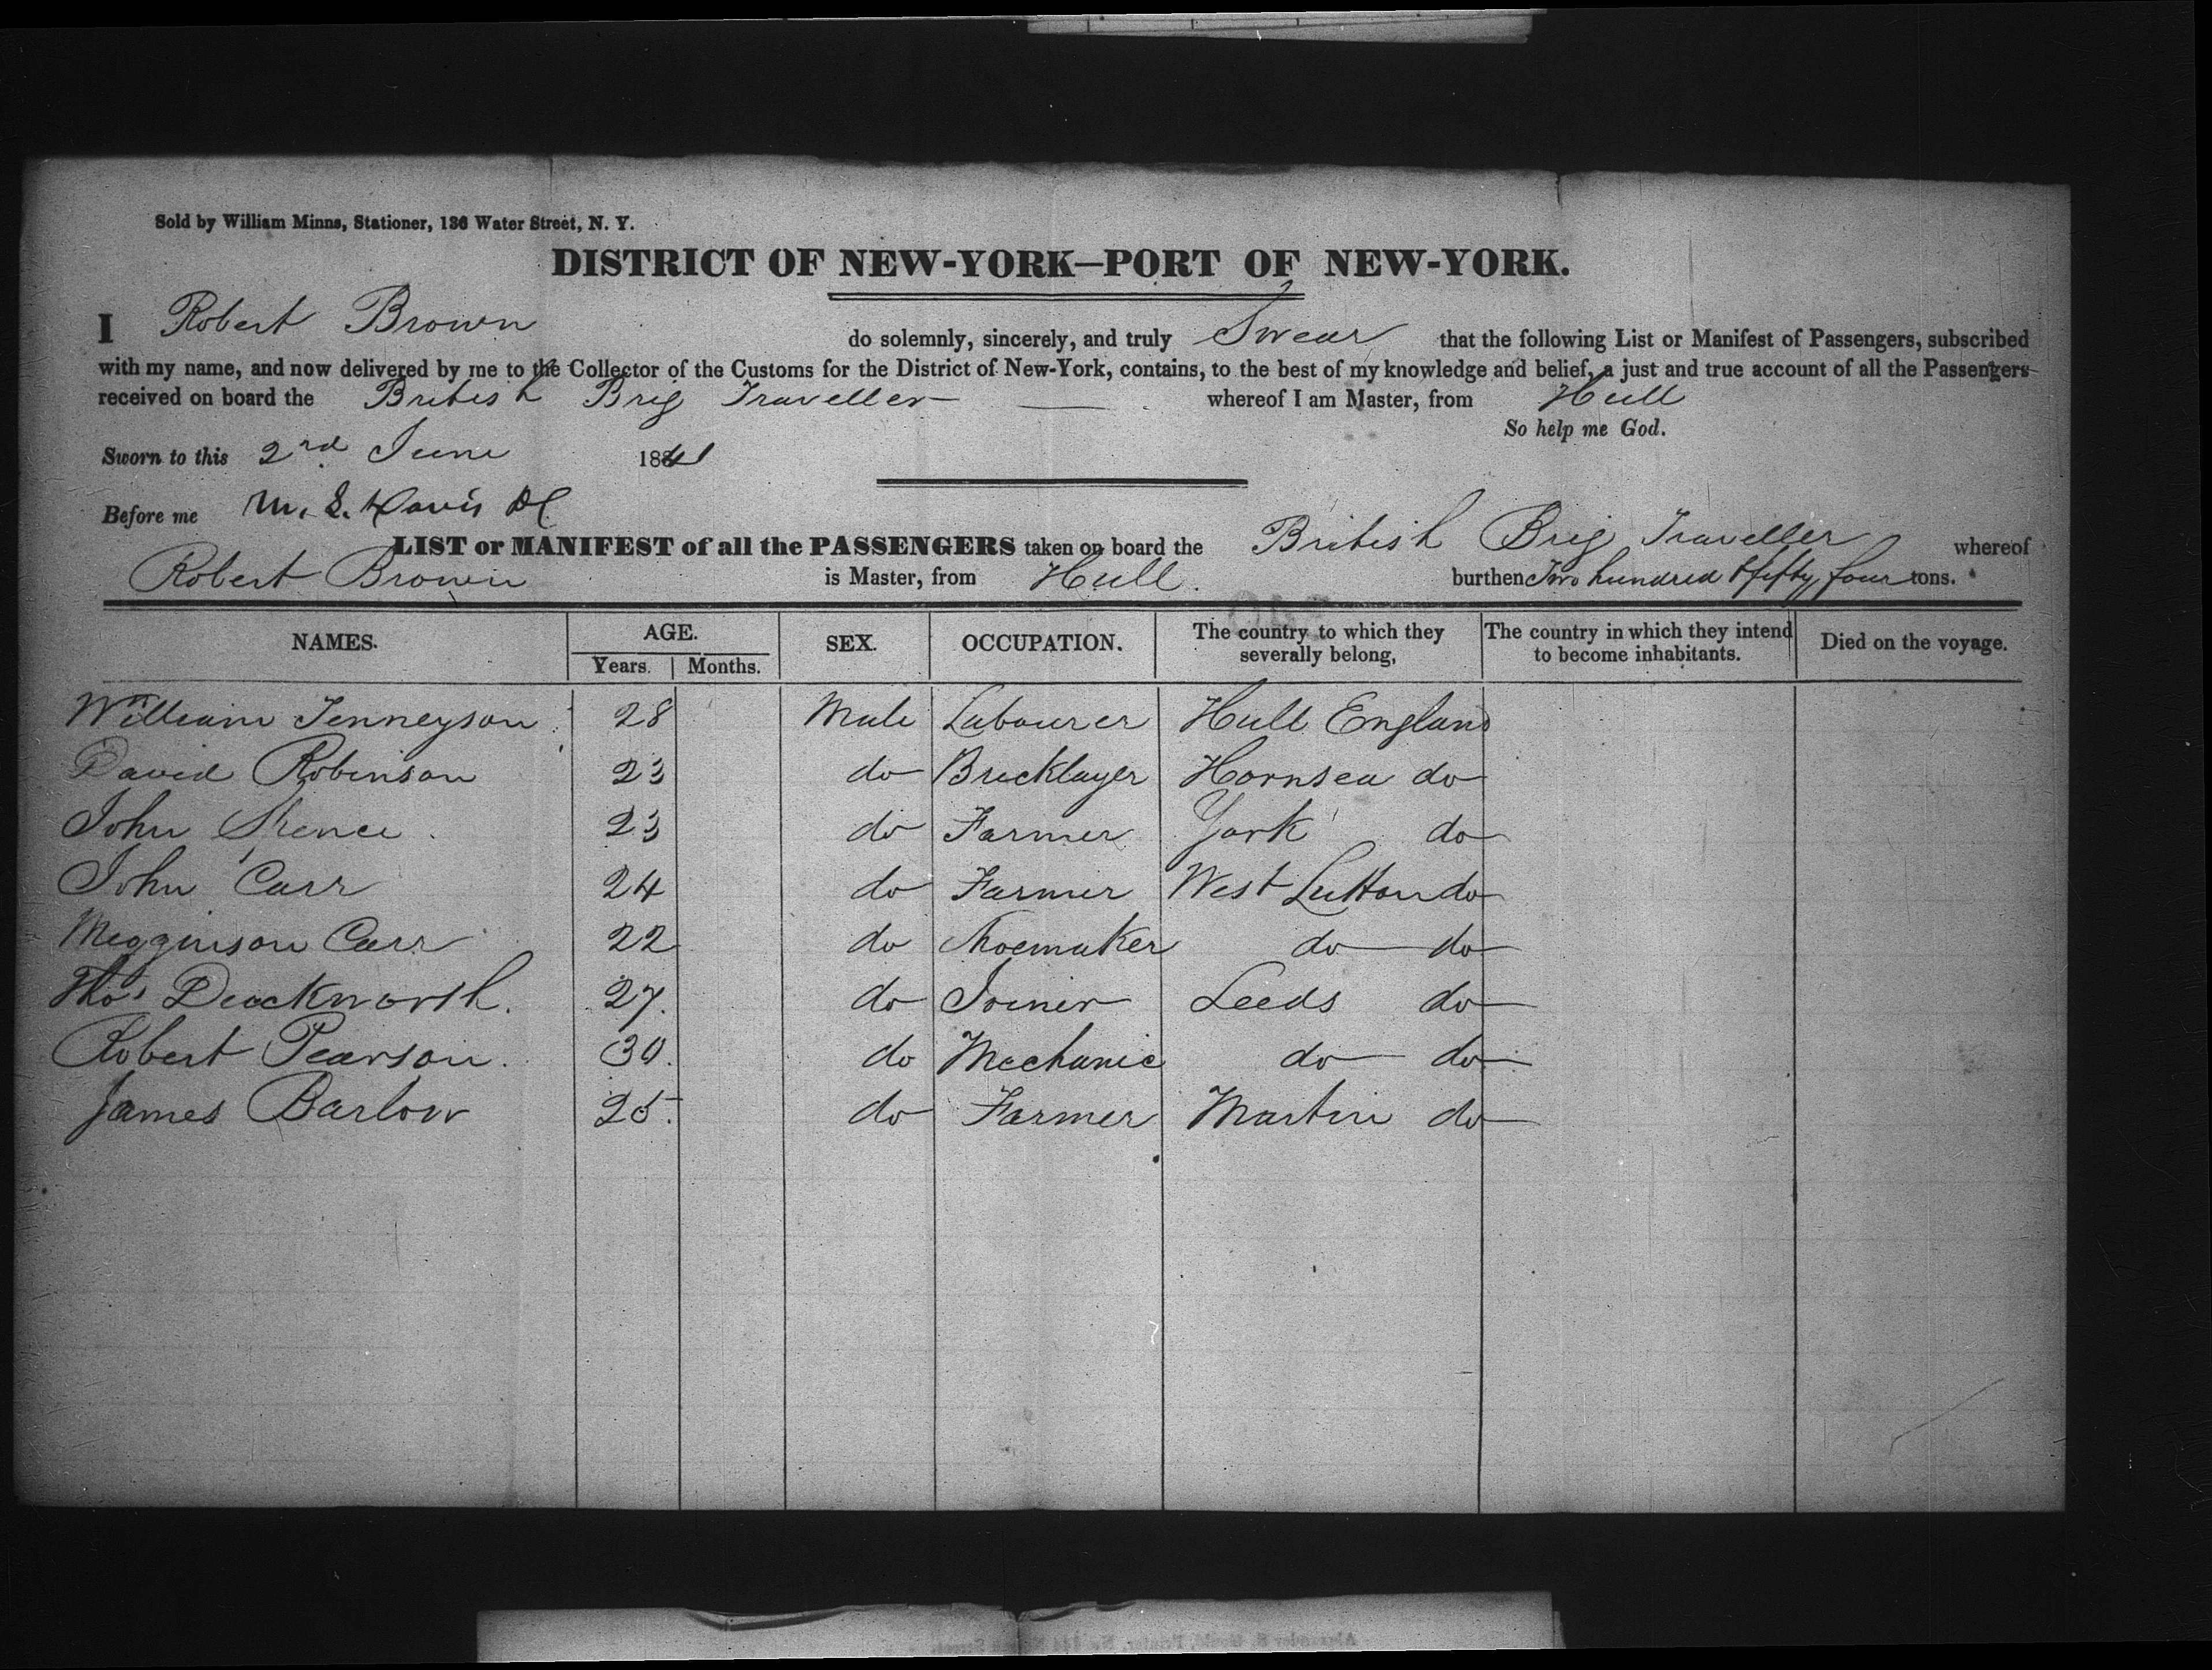 Sold by William Minns, Stationer, 136 Water Street, N. Y.
DISTRICT OF NEW-YORK—PORT OF NEW-YORK.
I Robert Brown do solemnly, sincerely, and truly Swear that the following List or Manifest of Passengers, subscribed
with my name, and now delivered by me to the Collector of the Customs for the District of New-York, contains, to the best of my knowledge and belief, a just and true account of all the Passengers
received on board the British Brig Traveller whereof I am Master, from Hull
So help me God.
Sworn to this 2nd June 1841
Before me M. L. Davis DC
LIST or MANIFEST of all the PASSENGERS taken on board the British Brig Traveller whereof
Robert Brown is Master, from Hull. burthen Two hundred & fifty four tons.
NAMES. AGE. Years. Months. SEX. OCCUPATION. The country to which they severally belong, The country in which they intend to become inhabitants. Died on the voyage.
William Tenneyson 28 Male Labourer Hull England
David Robinson 23 do Bricklayer Hornsea do
John Spence 23 do Farmer York do
John Carr 24 do Farmer West Lutton do
Megginson Carr 22 do Shoemaker do do
Thos Duckworth. 27. do Joiner Leeds do
Robert Pearson. 30. do Mechanic do do
James Barlow 25. do Farmer Martin do